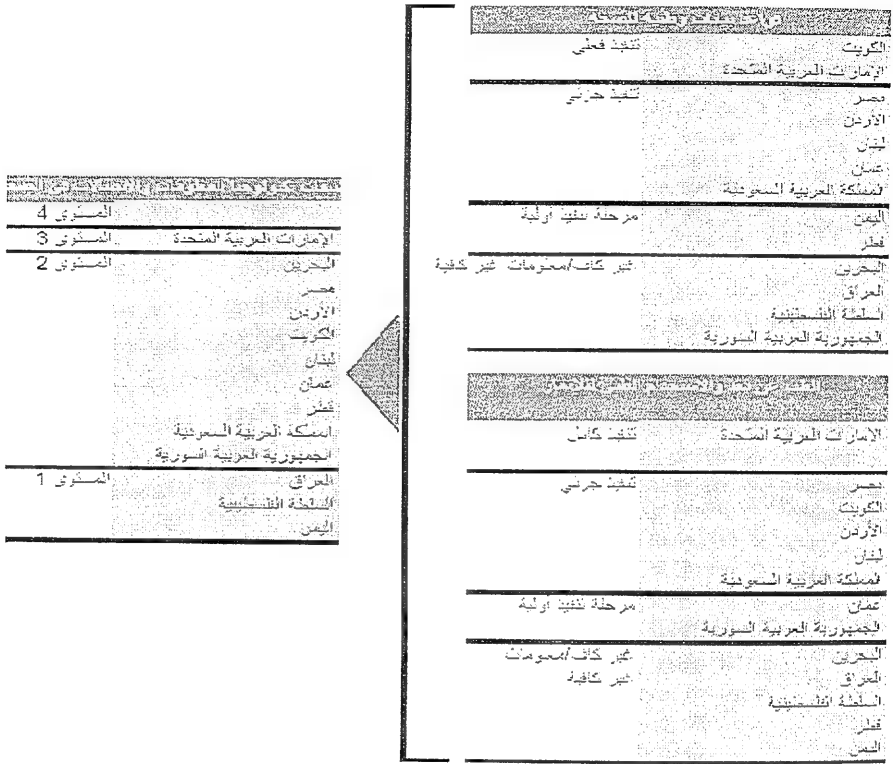 الكويت تنفيذ فعلي
الإمارات العربية المتحدة
مصر تنفيذ جزئي
الأردن
لبنان
عمان
المملكة العربية السعودية
اليمن مرحلة تنفيذ أولية
قطر
البحرين غير كاف/معلومات غير كافية
العراق
السلطة الفلسطينية
الجمهورية العربية السورية
الإمارات العربية المتحدة تنفيذ كامل
مصر تنفيذ جزئي
الكويت
الأردن
لبنان
المملكة العربية السعودية
عمان مرحلة تنفيذ أولية
الجمهورية العربية السورية
البحرين غير كاف/معلومات
العراق غير كافية
السلطة الفلسطينية
قطر
اليمن
المستوى 4
الإمارات العربية المتحدة المستوى 3
البحرين المستوى 2
مصر
الأردن
الكويت
لبنان
عمان
قطر
المملكة العربية السعودية
الجمهورية العربية السورية
العراق المستوى 1
السلطة الفلسطينية
اليمن